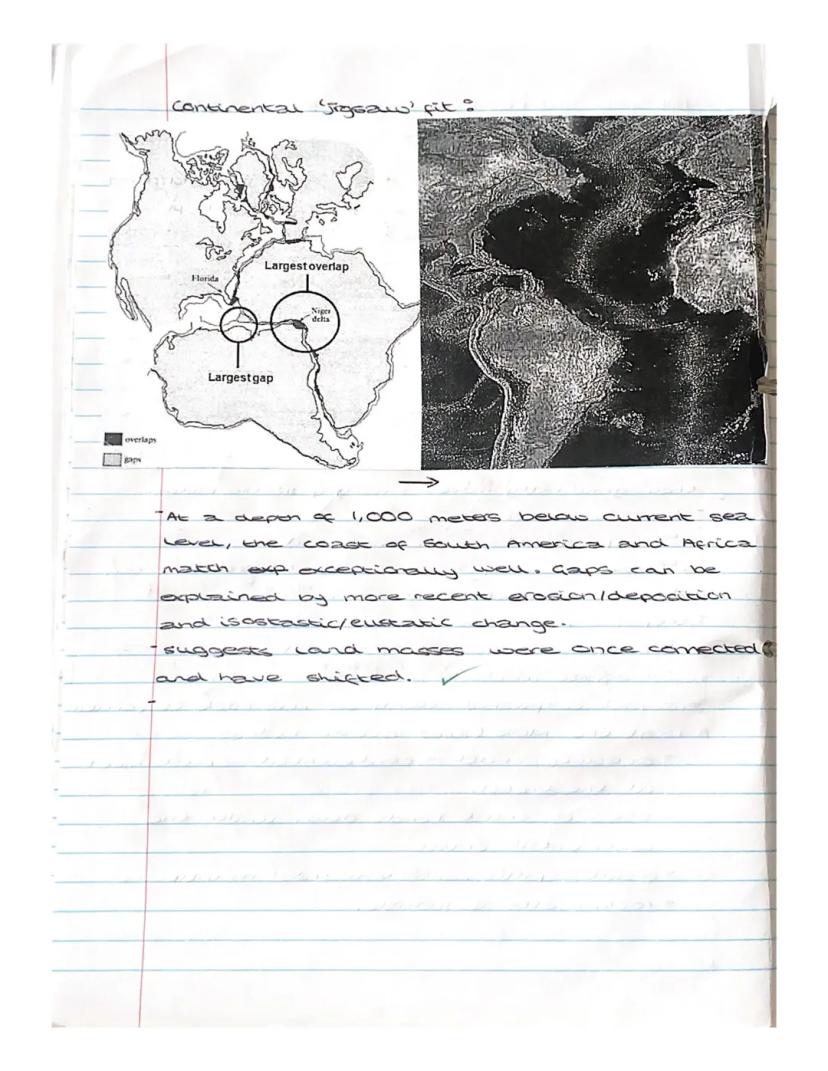 Continental 'Jigsaw' fit :
Florida
Largest overlap
Niger
delta
Largest gap
overlaps
gaps
- At a depth of 1,000 meters below current sea
level, the coast of South America and Africa
match exp exceptionally well. Gaps can be
explained by more recent erosion/deposition
and isostastic/eustatic change.
- suggests land masses were once connected
and have shifted. ✓
-